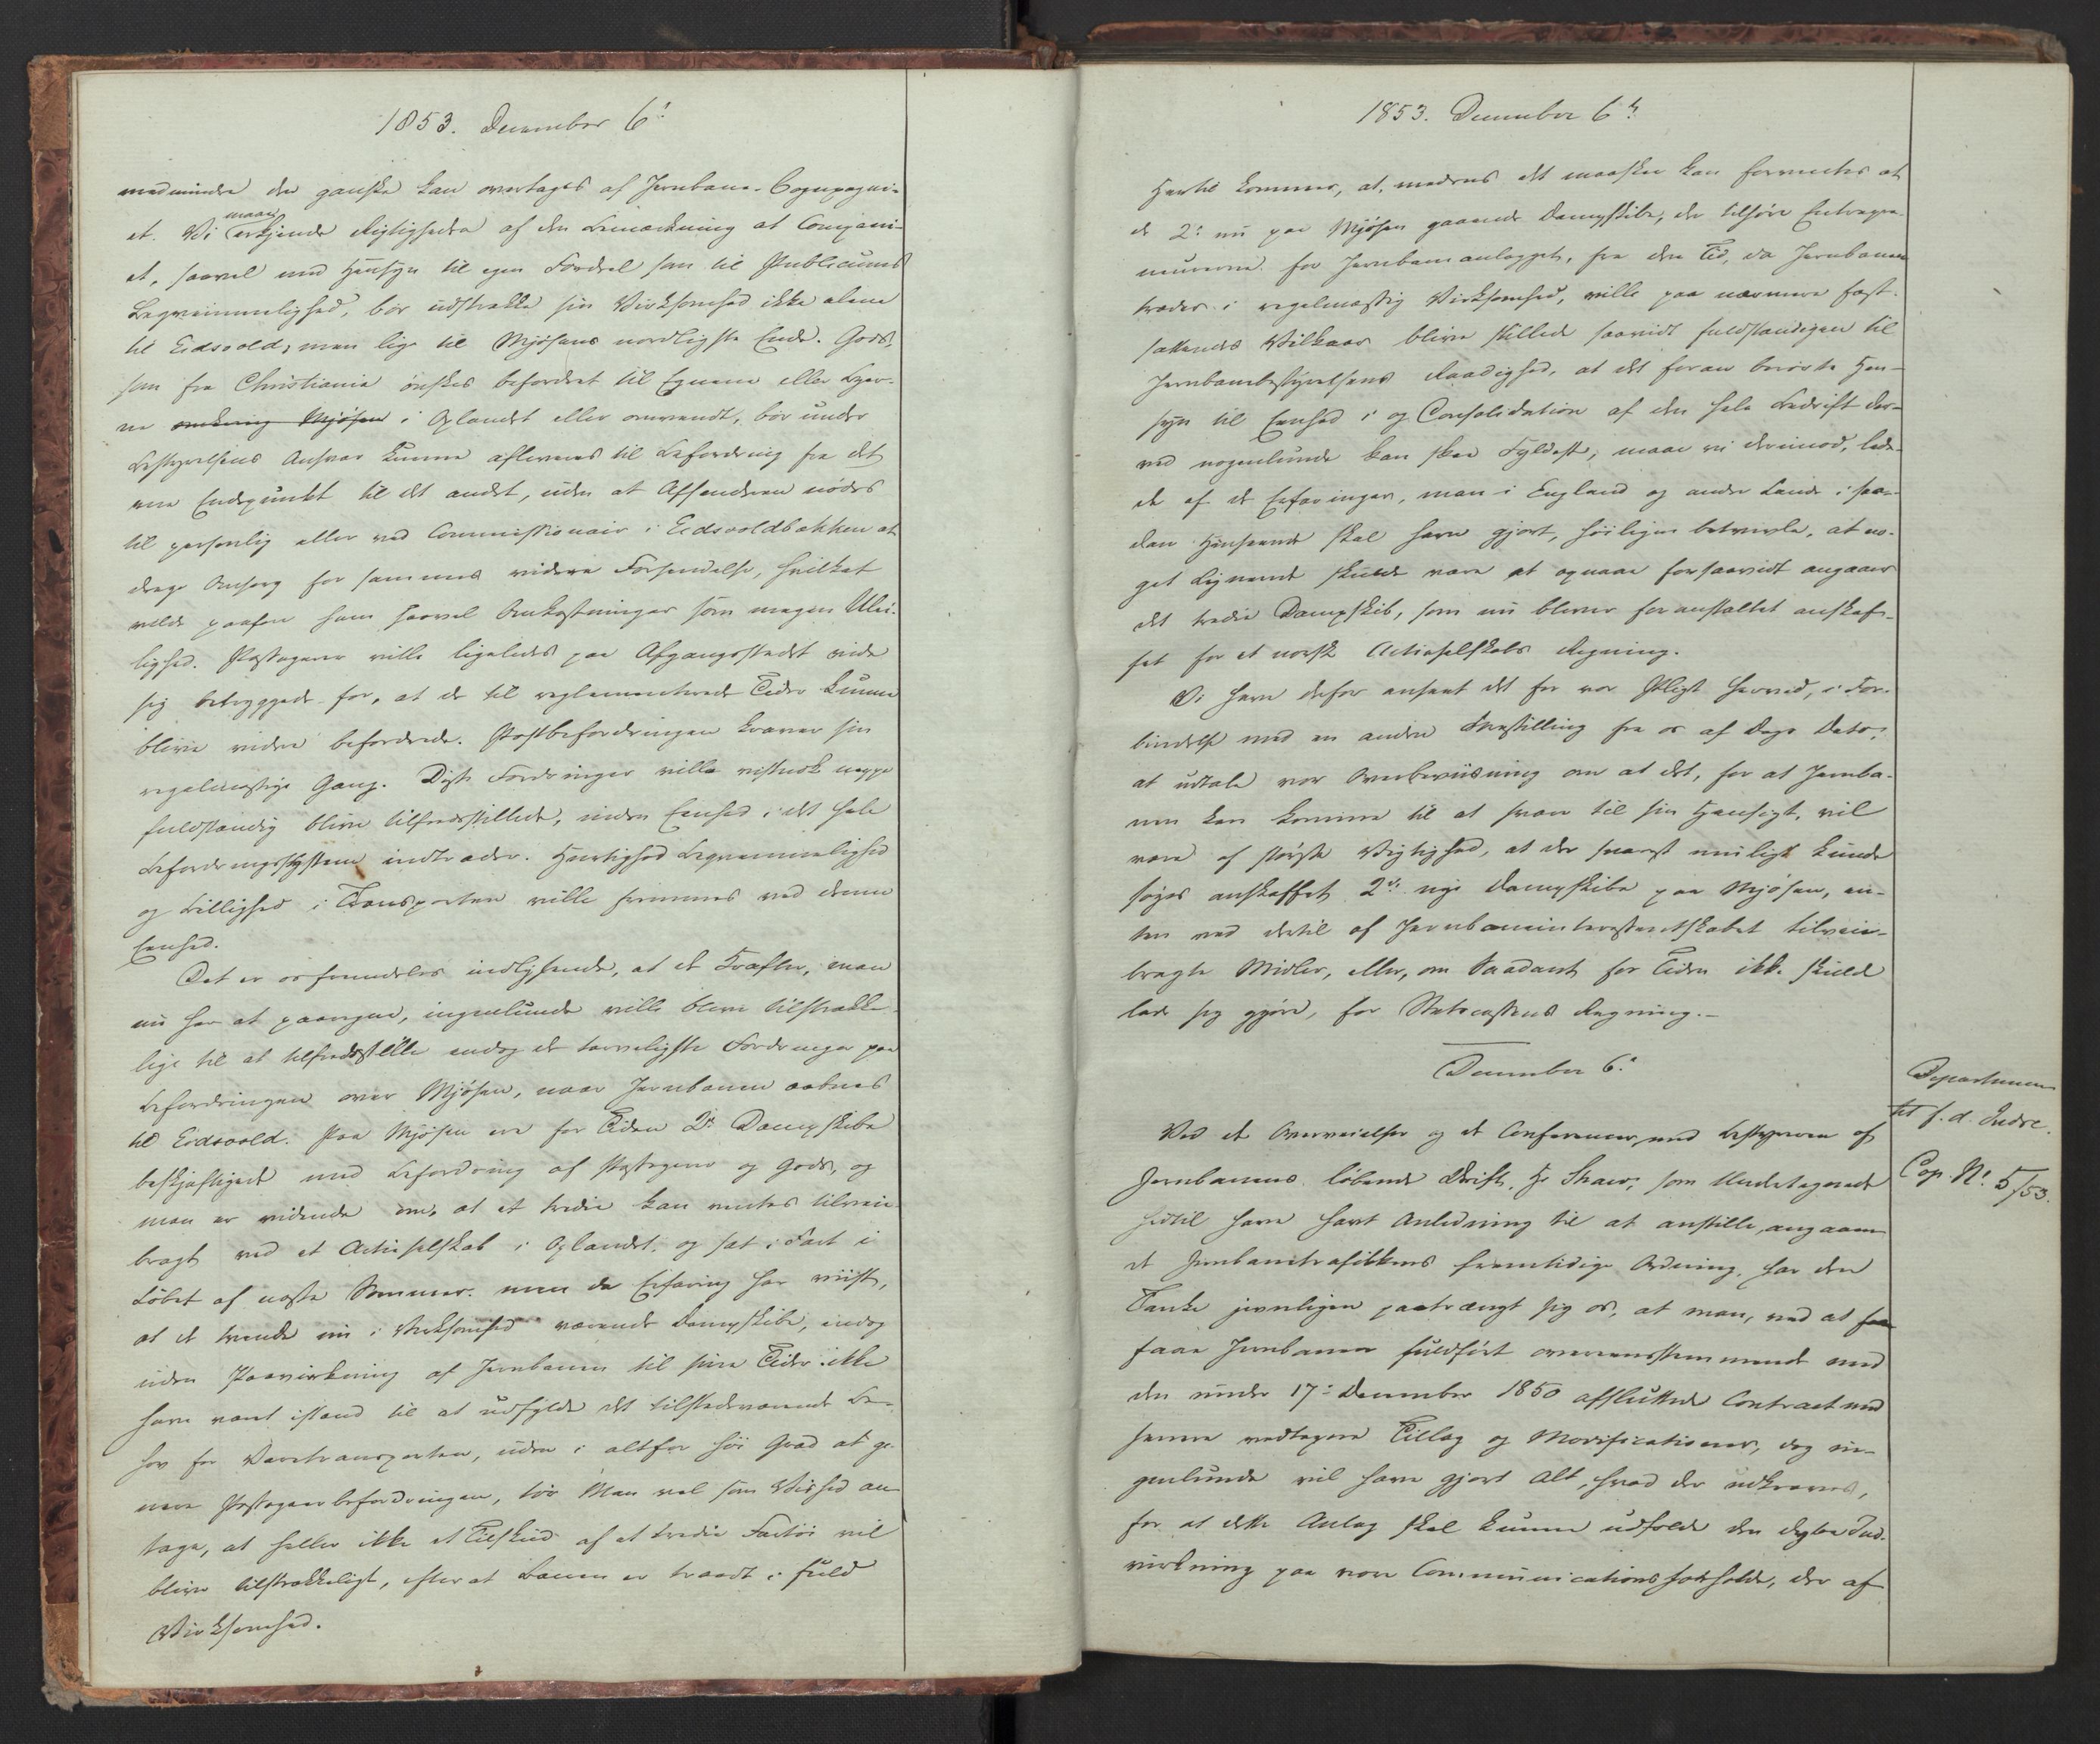 1853. December 6:
medmindre den ganske kan overtages af Jernbane-Compagni-
et. Vi maae erkjende Rigtigheden af den Bemærkning at Compani-
et, saavel med Hensyn til egen Fordeel som til Publicums
Beqvemmelighed, bør udstrække sin Virksomhed ikke alene
til Eidsvold, men lige til Mjøsens nordligste Ende. Gods,
som fra Christiania ønskes befordret til Egnene eller Byer-
ne omkring Mjøsen i Oplandet eller omvendt, bør under
Bestyrelsens Ansvar kunne afleveres til Befordring fra det
ene Endepunkt til det andet, uden at Afsenderen nødes
til personlig eller ved Commissionair i Eidsvoldbakken at
drage Omsorg for sammes videre Forsendelse, hvilket
vilde paaføre ham saavel Omkostninger som megen Ulei-
lighed. Passagerer ville ligeledes paa Afgangsstedet vide
sig betryggede for, at de til reglementerede Tider kunne
blive videre befordrede. Postbefordringen kræver sin
regelmæssige Gang. Disse Fordringer ville vistnok neppe
fuldstændig blive tilfredsstillede, uden Eenhed i det hele
Befordringssystem indtræder. Hurtighed Beqvemmelighed
og Billighed i Transporten ville fremmes ved denne
Eenhed.
Det er os fremdeles indlysende, at de Kræfter, man
nu har at paaregne, ingenlunde ville blive tilstrække-
lige til at tilfredsstille endog de tarveligste Fordringer paa
Befordringen over Mjøsen, naar Jernbanen aabnes
til Eidsvold. Paa Mjøsen ere for Tiden 2de Dampskibe
beskjæftigede med Befordring af Passagerer og Gods, og
man er vidende om, at et tredie kan ventes tilveie-
bragt ved et Actieselskab i Oplandet, og sat i Fart i
Løbet af næste Sommer. men da Erfaring har viist,
at de tvende nu i Virksomhed værende Dampskibe, endog
uden Paavirkning af Jernbanen til sine Tider ikke
have været istand til at udfylde det tilstedeværende Be-
hov for Varetransporten, uden i altfor høi Grad at ge-
nere Passagerbefordringen, tør Man vel som Vished an-
tage, at heller ikke et Tilskud af et tredie Fartøi vil
blive tilstrækkeligt, efterat Banen er traadt i fuld
Virksomhed.
1853. December 6te
Hertil kommer, at, medens det maaskee kan forventes at
de 2de nu paa Mjøsen gaaende Dampskibe, der tilhøre Entrepre-
neurerne for Jernbaneanlægget, fra den Tid, da Jernbanen
træder i regelmæssig Virksomhed, ville paa nærmere fast-
sættende Vilkaar blive stillede saavidt fuldstændigen til
Jernbanebestyrelsens Raadighed, at det foran berørte Hen-
syn til Eenhed i og Consolidation af den hele Bedrift der-
ved nogenlunde kan skee Fyldest, maae vi derimod, lede-
de af de Erfaringer, man i England og andre Lande i saa-
dan Henseende skal have gjort, høiligen betvivle, at no-
get Lignende skulde være at opnaae forsaavidt angaaer
det tredie Dampskib, som nu bliver foranstaltet anskaf-
fet for et norsk Actieselskabs Regning.
Vi have derfor anseet det for vor Pligt herved, i For-
bindelse med en anden Indstilling fra os af Dags Dato,
at udtale vor Overbeviisning om at det, for at Jernba-
nen kan komme til at svare til sin Hensigt, vil
være af største Vigtighed, at der snarest muligt kunde
søges anskaffet 2de nye Dampskibe paa Mjøsen, en-
ten ved dertil af Jernbaneinteressentskabet tilveie-
bragte Midler, eller, om Saadant for Tiden ikke skulde
lade sig gjøre, for Statscassens Regning.-
December 6:
Departemen-
tet f. d. Indre.
Cop. N: 5/53.
Ved de Overveielser og de Conferencer, med Bestyreren af
Jernbanens løbende Drift, Hr Shaw, som Undertegnede
hidtil have havt Anledning til at anstille, angaaen-
de Jernbanetrafikkens fremtidige Ordning, har den
Tanke jevnligen paatrængt sig os, at man, ved at faae
faae Jernbanen fuldført overeensstemmende med
den under 17: December 1850 afsluttede Contract med
senere vedtagne Tillæg og Modificationer, dog in-
genlunde vil have gjort Alt, hvad der udkræves,
for at dette Anlæg skal kunne udfolde den dybe Ind-
virkning paa vore Communicationsforholde, der af